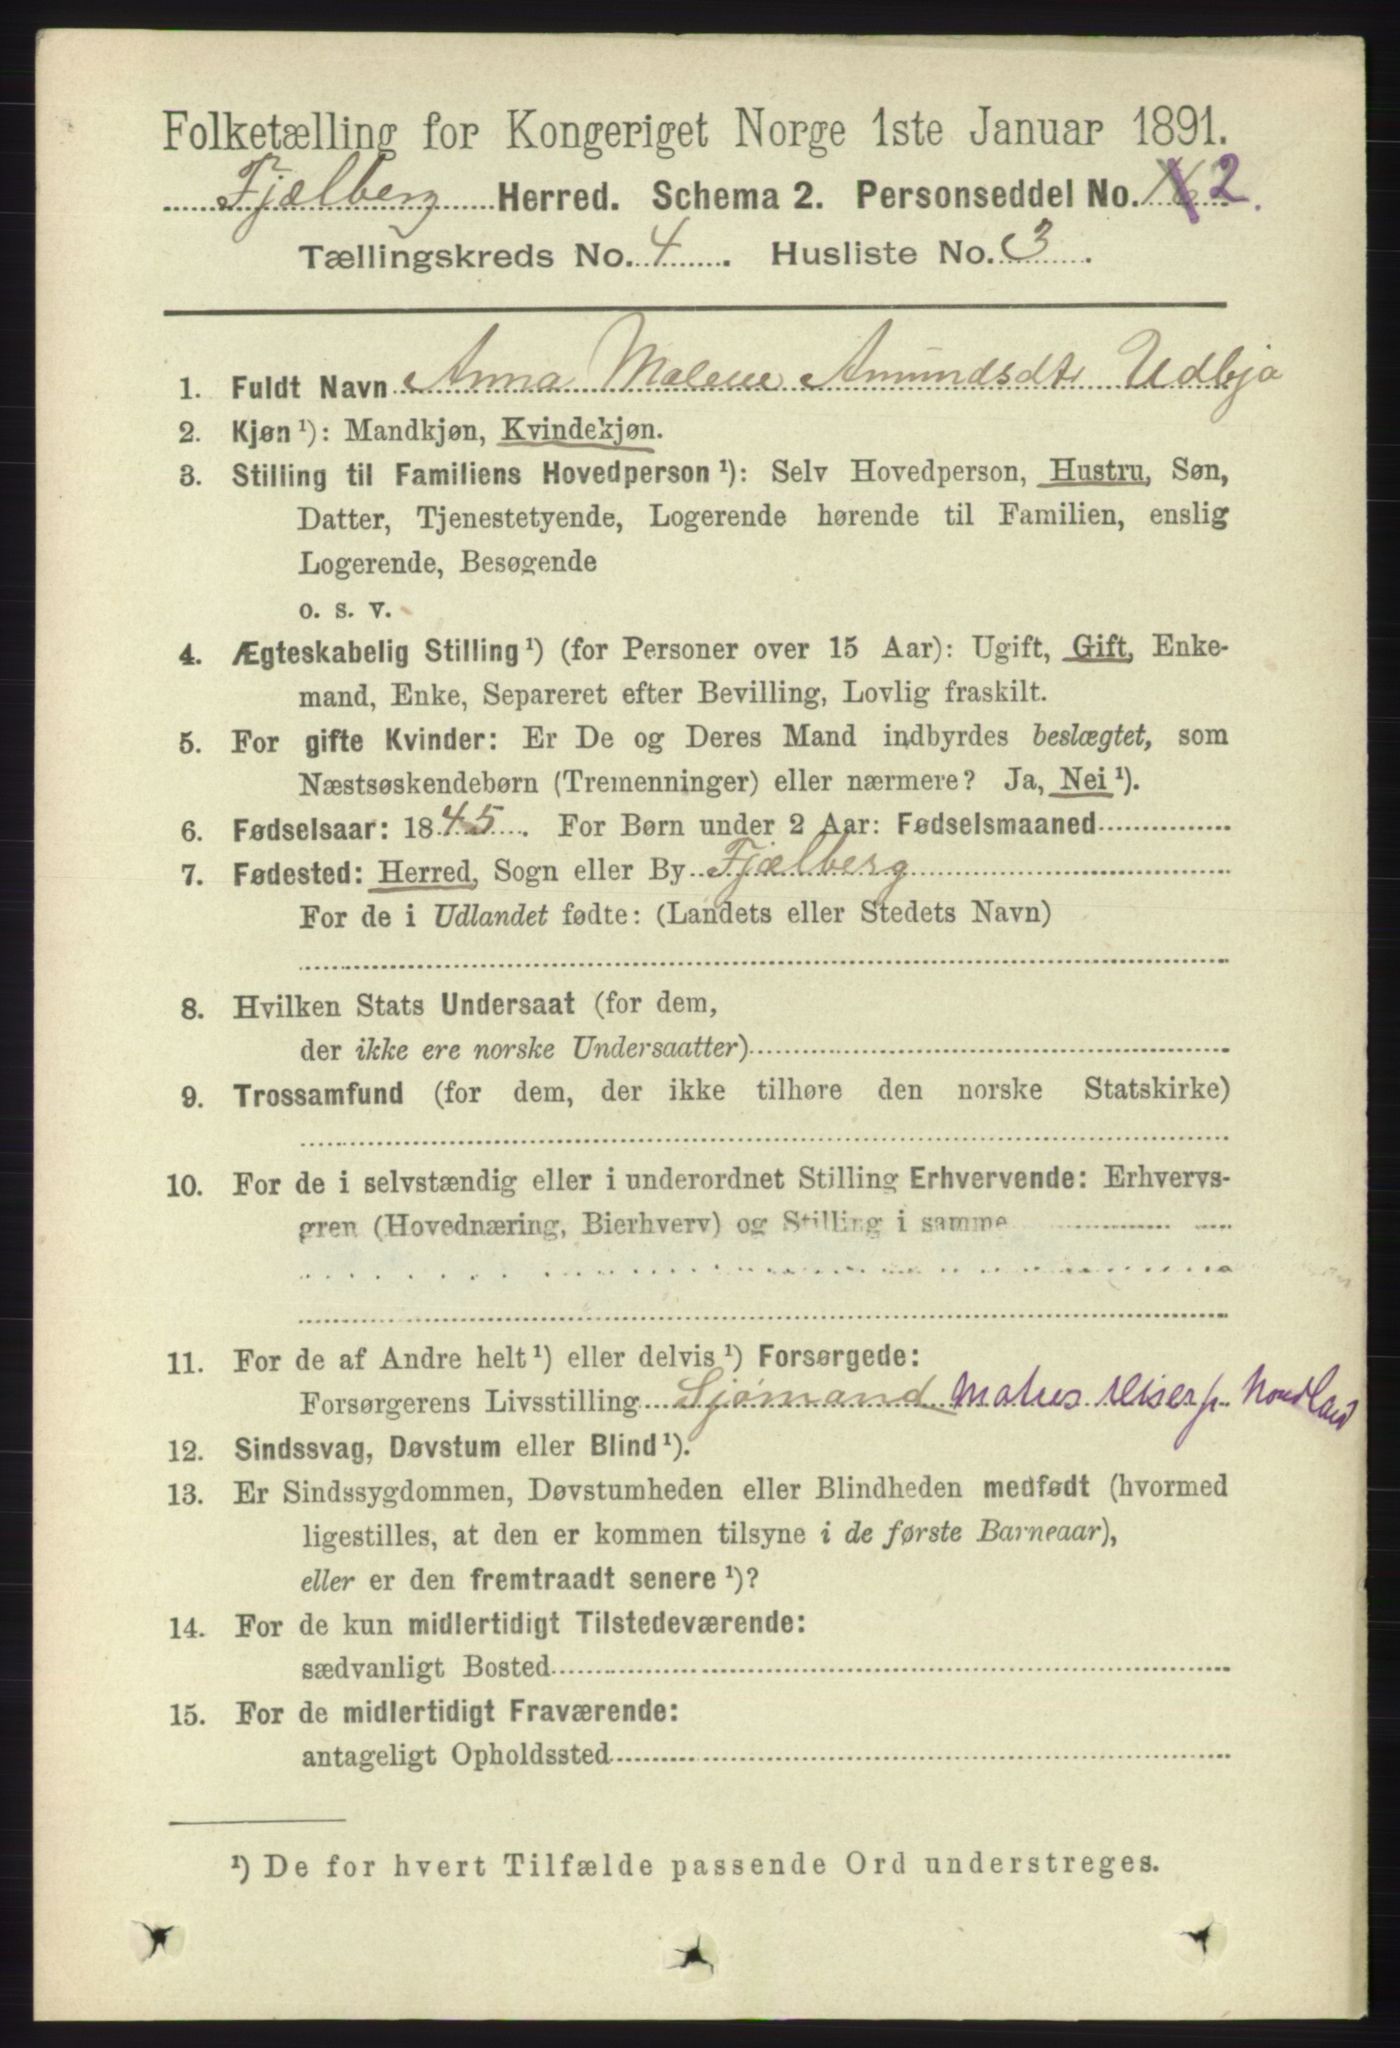 Folketælling for Kongeriget Norge 1ste Januar 1891.
Fjælberg Herred. Schema 2. Personseddel No. 2.
Tællingskreds No. 4. Husliste No. 3.
1. Fuldt Navn Anna Malene Amundsdt. Udbjo
2. Kjøn ¹): Mandkjøn, Kvindekjøn.
3. Stilling til Familiens Hovedperson ¹): Selv Hovedperson, Hustru, Søn,
Datter, Tjenestetyende, Logerende hørende til Familien, enslig
Logerende, Besøgende
o. s. v.
4. Ægteskabelig Stilling ¹) (for Personer over 15 Aar): Ugift, Gift, Enke-
mand, Enke, Separeret efter Bevilling, Lovlig fraskilt.
5. For gifte Kvinder: Er De og Deres Mand indbyrdes beslægtet, som
Næstsøskendebørn (Tremenninger) eller nærmere? Ja, Nei ¹).
6. Fødselsaar: 1845. For Børn under 2 Aar: Fødselsmaaned
7. Fødested: Herred, Sogn eller By Fjælberg
For de i Udlandet fødte: (Landets eller Stedets Navn)
8. Hvilken Stats Undersaat (for dem,
der ikke ere norske Undersaatter)
9. Trossamfund (for dem, der ikke tilhøre den norske Statskirke)
10. For de i selvstændig eller i underordnet Stilling Erhvervende: Erhvervs-
gren (Hovednæring, Bierhverv) og Stilling i samme
11. For de af Andre helt ¹) eller delvis ¹) Forsørgede:
Forsørgerens Livsstilling Sjømand Nordland
12. Sindssvag, Døvstum eller Blind ¹).
13. Er Sindssygdommen, Døvstumheden eller Blindheden medfødt (hvormed
ligestilles, at den er kommen tilsyne i de første Barneaar),
eller er den fremtraadt senere ¹)?
14. For de kun midlertidigt Tilstedeværende:
sædvanligt Bosted
15. For de midlertidigt Fraværende:
antageligt Opholdssted
¹) De for hvert Tilfælde passende Ord understreges.